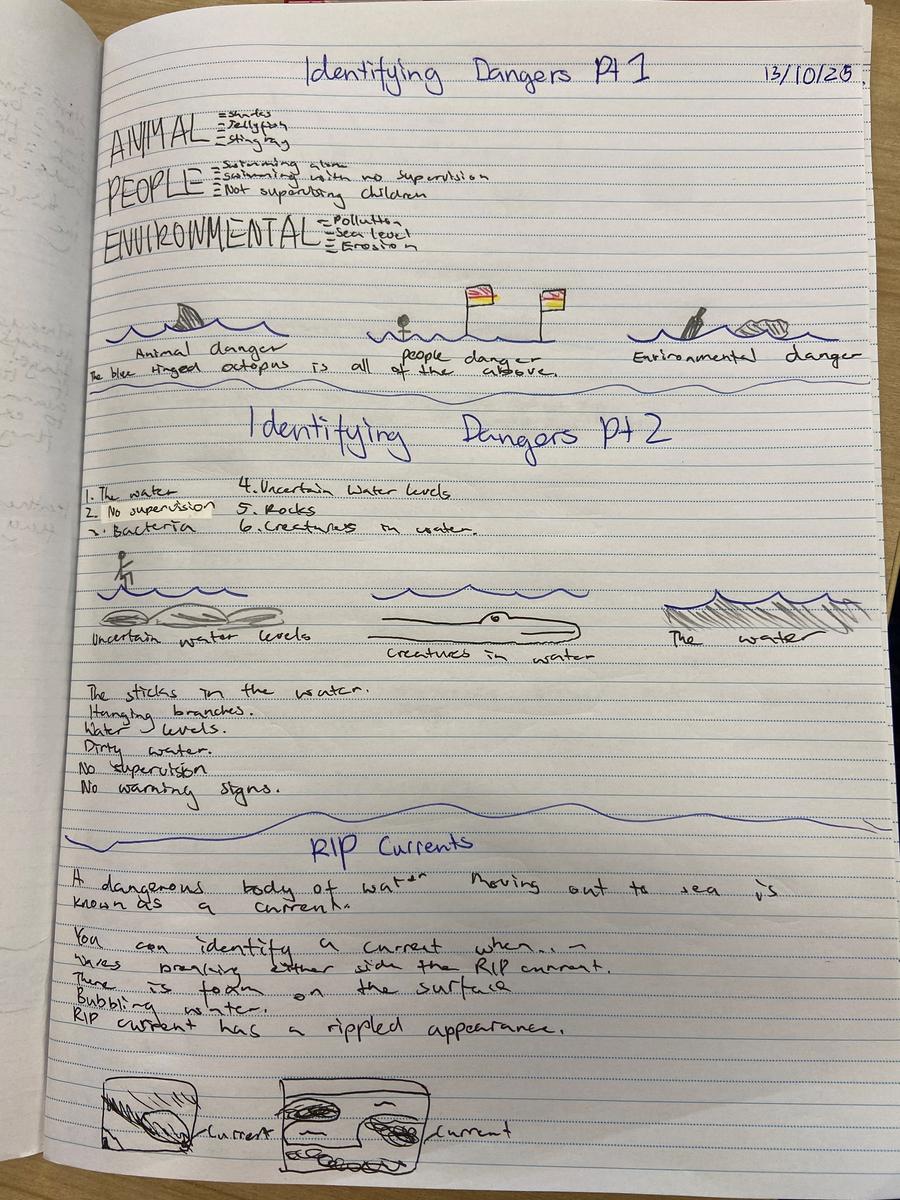 Identifying Dangers Pt 1
13/10/25
ANIMAL
- Sharks
- Jellyfish
- Stingray
PEOPLE
- Swimming alone
- swimming with no supervision
- Not supervising children
ENVIRONMENTAL
- Pollution
- Sea level
- Erosion
Animal danger
people danger
Environmental danger
The blue ringed octopus is all of the above.
Identifying Dangers Pt 2
1. The water
2. No supervision
3. Bacteria
4. Uncertain water levels
5. Rocks
6. Creatures in water.
Uncertain water levels
Creatures in water
The water
The sticks in the water.
Hanging branches.
Water levels.
Dirty water.
No supervision
No warning signs.
RIP Currents
A dangerous body of water moving out to sea is
known as a current.
You can identify a current when...
Waves breaking either side the RIP current.
There is foam on the surface
Bubbling water.
RIP current has a rippled appearance.
Current
Current